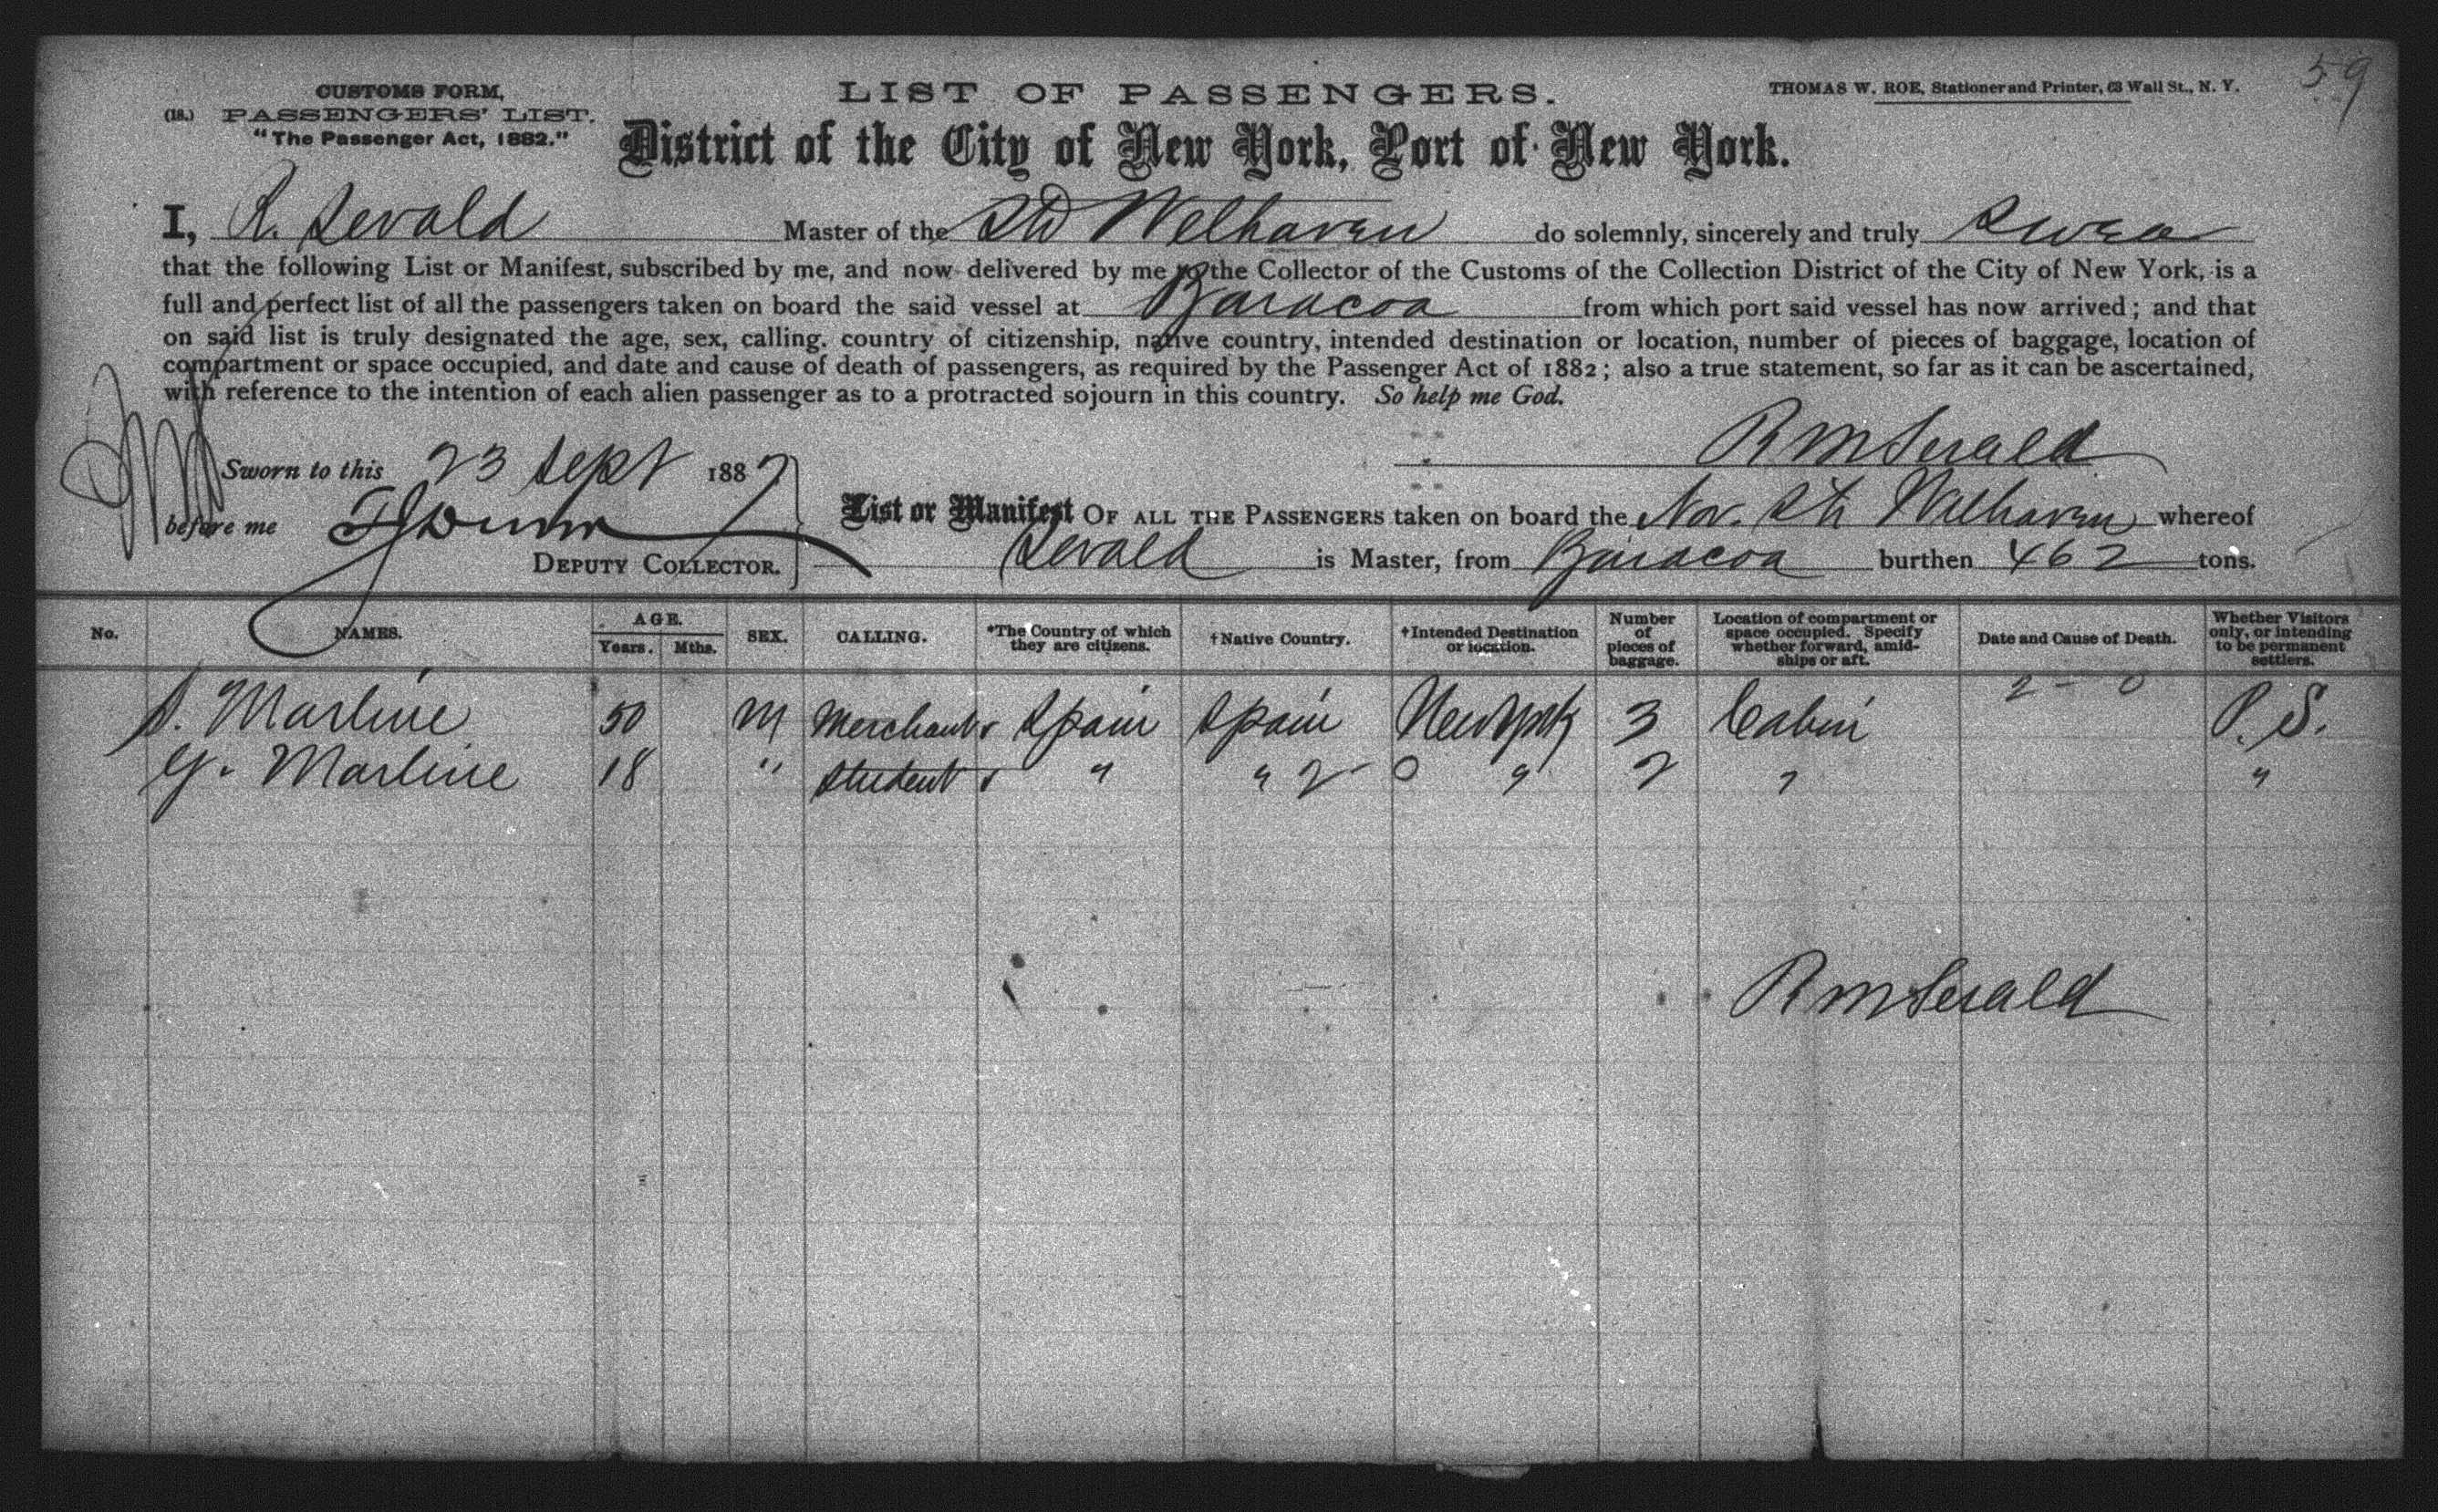 59
CUSTOMS FORM,
(18.) PASSENGERS' LIST.
"The Passenger Act, 1882."
LIST OF PASSENGERS.
THOMAS W. ROE, Stationer and Printer, 63 Wall St., N. Y.
District of the City of New York, Port of New York.
I, R. Sevald Master of the Str Welhaven do solemnly, sincerely and truly swear
that the following List or Manifest, subscribed by me, and now delivered by me to the Collector of the Customs of the Collection District of the City of New York, is a
full and perfect list of all the passengers taken on board the said vessel at Baracoa from which port said vessel has now arrived; and that
on said list is truly designated the age, sex, calling, country of citizenship, native country, intended destination or location, number of pieces of baggage, location of
compartment or space occupied, and date and cause of death of passengers, as required by the Passenger Act of 1882; also a true statement, so far as it can be ascertained,
with reference to the intention of each alien passenger as to a protracted sojourn in this country. So help me God.
R M Sevald
Sworn to this 23 Sept 1887
before me
DEPUTY COLLECTOR.
List or Manifest OF ALL THE PASSENGERS taken on board the Nor. Str Welhaven whereof
Sevald is Master, from Baracoa burthen 462 tons.
No. NAMES. AGE. Years. Mths. SEX. CALLING. *The Country of which they are citizens. †Native Country. †Intended Destination or location. Number of pieces of baggage. Location of compartment or space occupied. Specify whether forward, amidships or aft. Date and Cause of Death. Whether Visitors only, or intending to be permanent settlers.
2 - 0
S. Marline 50 M Merchant Spain Spain New York 3 Cabin P. S.
Y. Marline 18 " Student " " 2 - 0 " 2 " "
R M Sevald